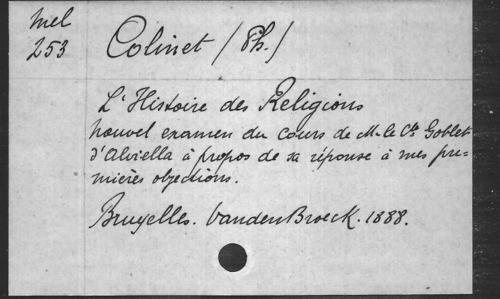 Mel
253
Colinet (Ph.)
L'Histoire des Religions
nouvel examen du cours de M. le Cte Goblet
d'Alviella à propos de sa réponse à mes pre=
mières objections.
Bruxelles. VandenBroeck. 1888.